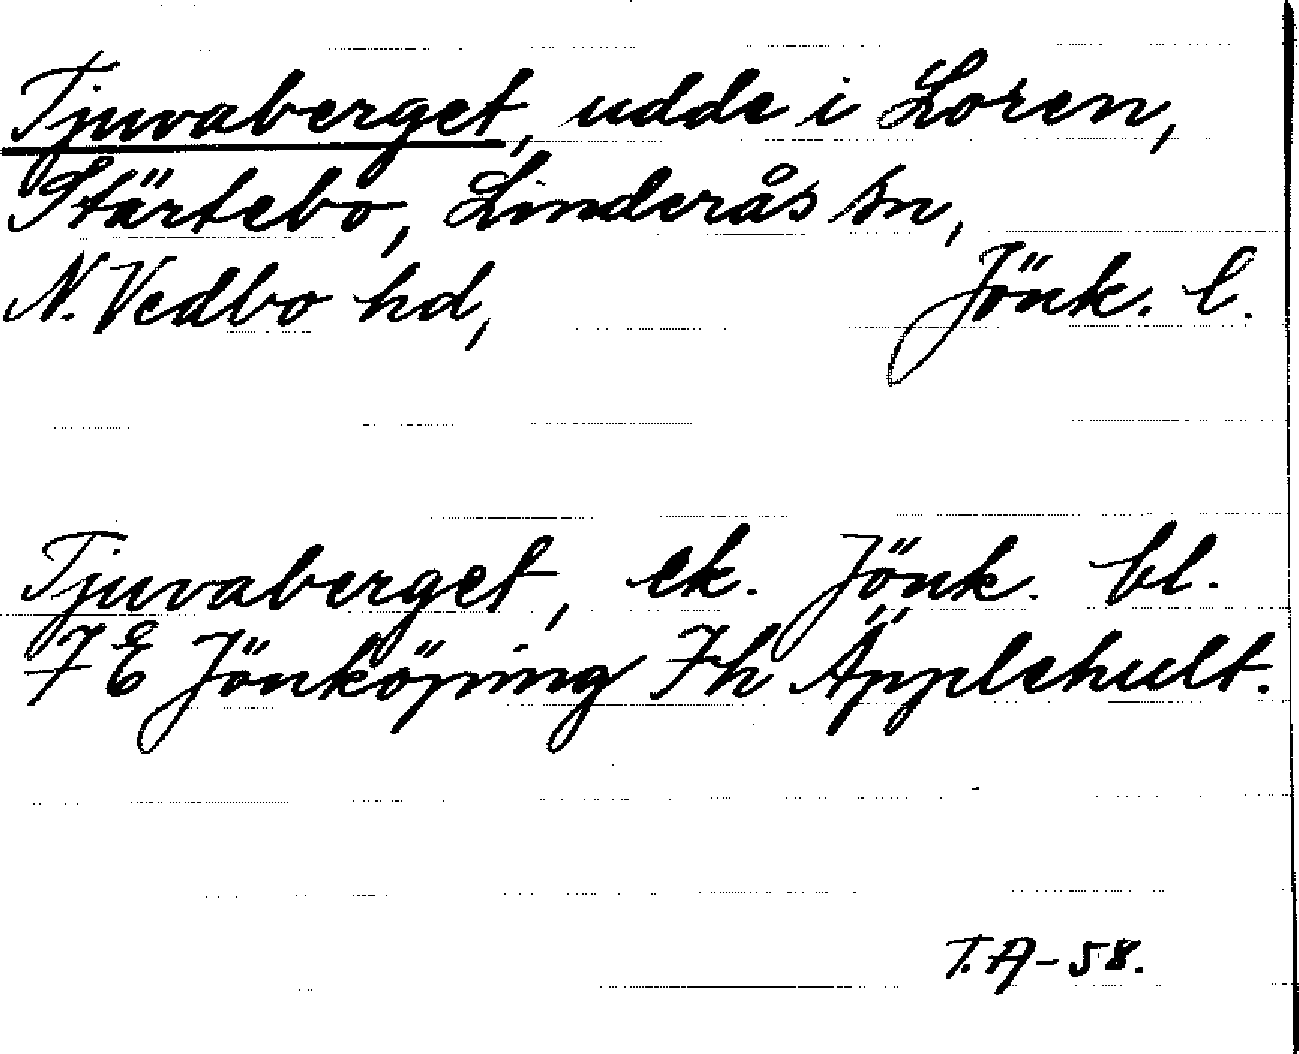 Tjuvaberget, udde i Loren,
Stärtebo, Linderås sn,
N. Vedbo hd, Jönk. l.
Tjuvaberget, ek. Jönk. bl.
7 E Jönköping 7h Äpplehult.
T.A-58.